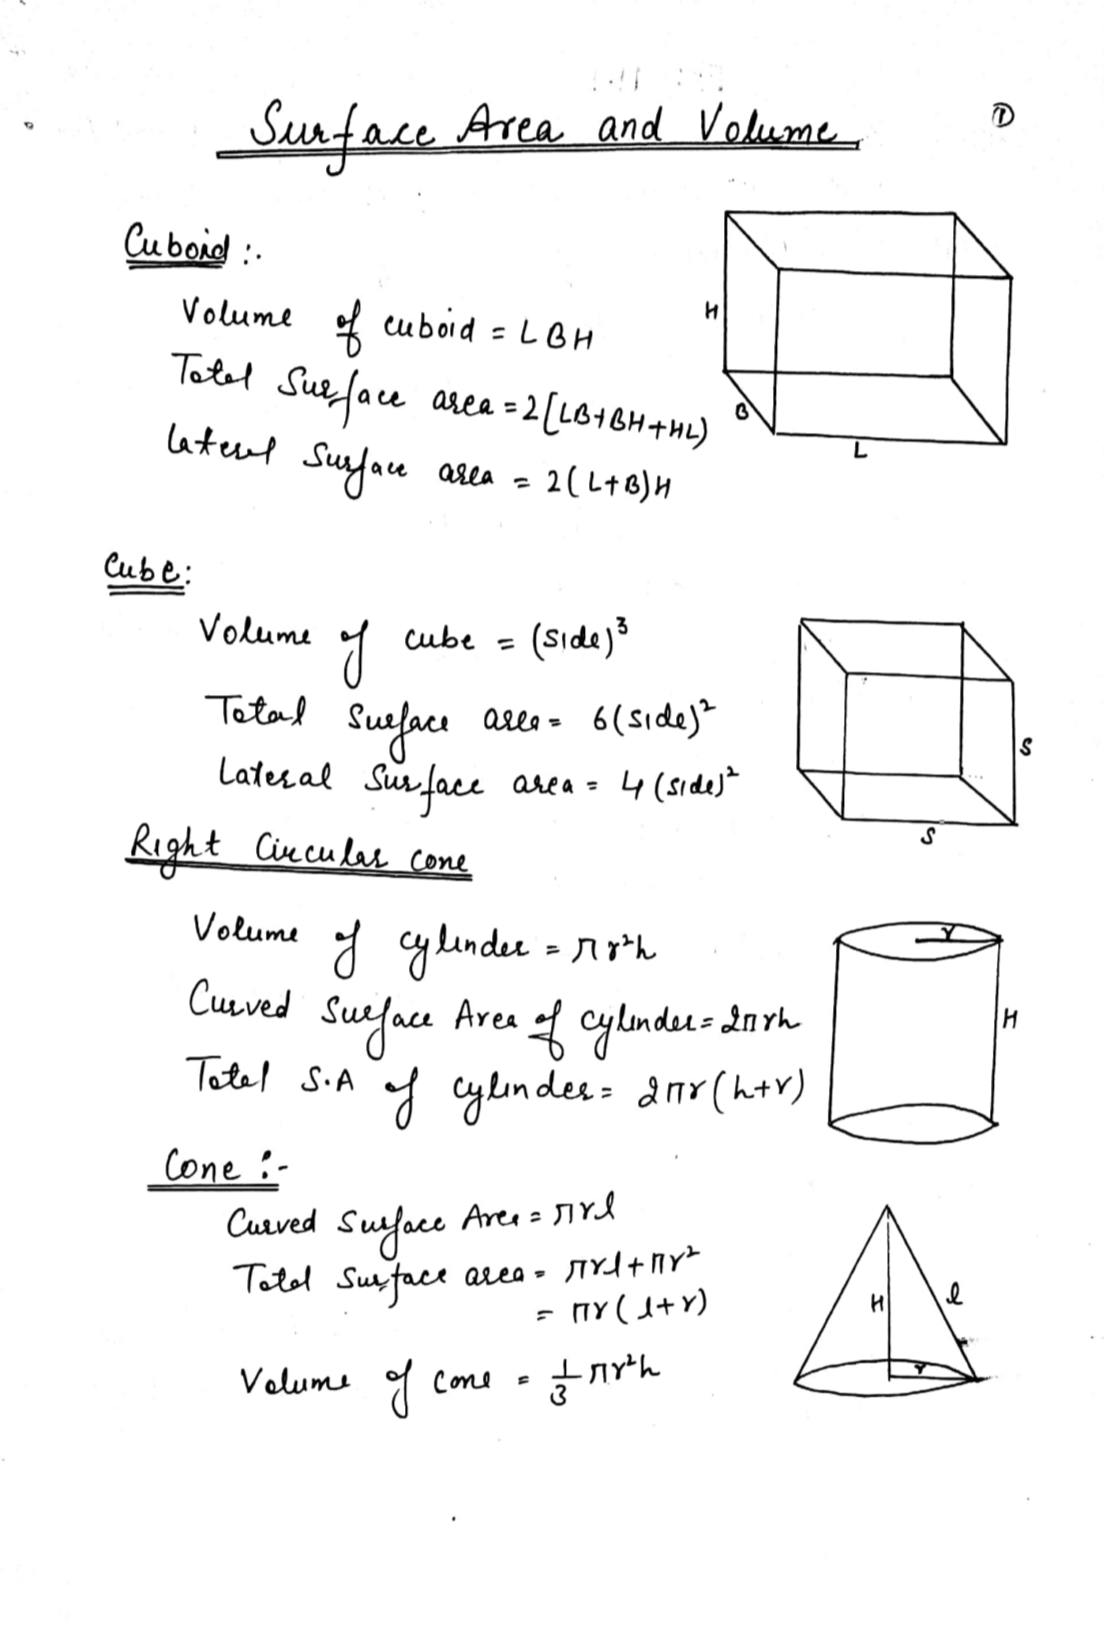 Surface Area and Volume
①
Cuboid :.
Volume of cuboid = LBH
Total Surface area = 2[LB+BH+HL)
Lateral Surface area = 2(L+B)H
H
B
L
Cube:
Volume of cube = (side)³
Total Surface area = 6(side)²
Lateral Surface area = 4(side)²
S
S
Right Circular cone
Volume of cylinder = πr²h
Curved Surface Area of cylinder = 2πrh
Total S.A of cylinder = 2πr(h+r)
r
H
Cone :-
Curved Surface Area = πrl
Total Surface area = πrl+πr²
= πr(l+r)
Volume of cone = 1/3 πr²h
H
l
r